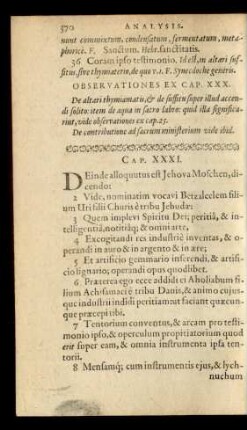 570 ANALYSIS.
nunt commixtum, condensatum, fermentatum, meta-
phoricè. F. Sanctum. Hebr. sanctitatis.
36 Coram ipso testimonio. Id est, in altari suf-
fitus, sive thymiaterio, de quo v. 1. F. Synecdoche generis.
OBSERVATIONES EX CAP. XXX.
De altari thymiamatis, & de suffitu super illud accen-
di solito: item de aqua in sacro labro: quid illa significa-
rint, vide observationes ex cap. 25.
De contributione ad sacrum ministerium vide ibid.
CAP. XXXI.
DEinde alloquutus est Jehova Moschen, di-
cendo:
2 Vide, nominatim vocavi Betzaleelem fili-
um Uri filii Churis è tribu Jehudæ:
3 Quem implevi Spiritu Dei; peritiâ, & in-
telligentiâ, notitiáq; & omni arte,
4 Excogitandi res industriè inventas, & o-
perandi in auro & in argento & in ære;
5 Et artificio gemmario inferendi, & artifi-
cio lignario; operandi opus quodlibet.
6 Præterea ego ecce addidi ei Aholiabum fi-
lium Achisamaci è tribu Danis, & animo cujus-
que industrii indidi peritiam ut faciant quæcun-
que præcepi tibi.
7 Tentorium conventus, & arcam pro testi-
monio ipso, & operculum propitiatorium quod
erit super eam, & omnia instrumenta ipsa ten-
torii.
8 Mensamq; cum instrumentis ejus, & lych-
nuchum